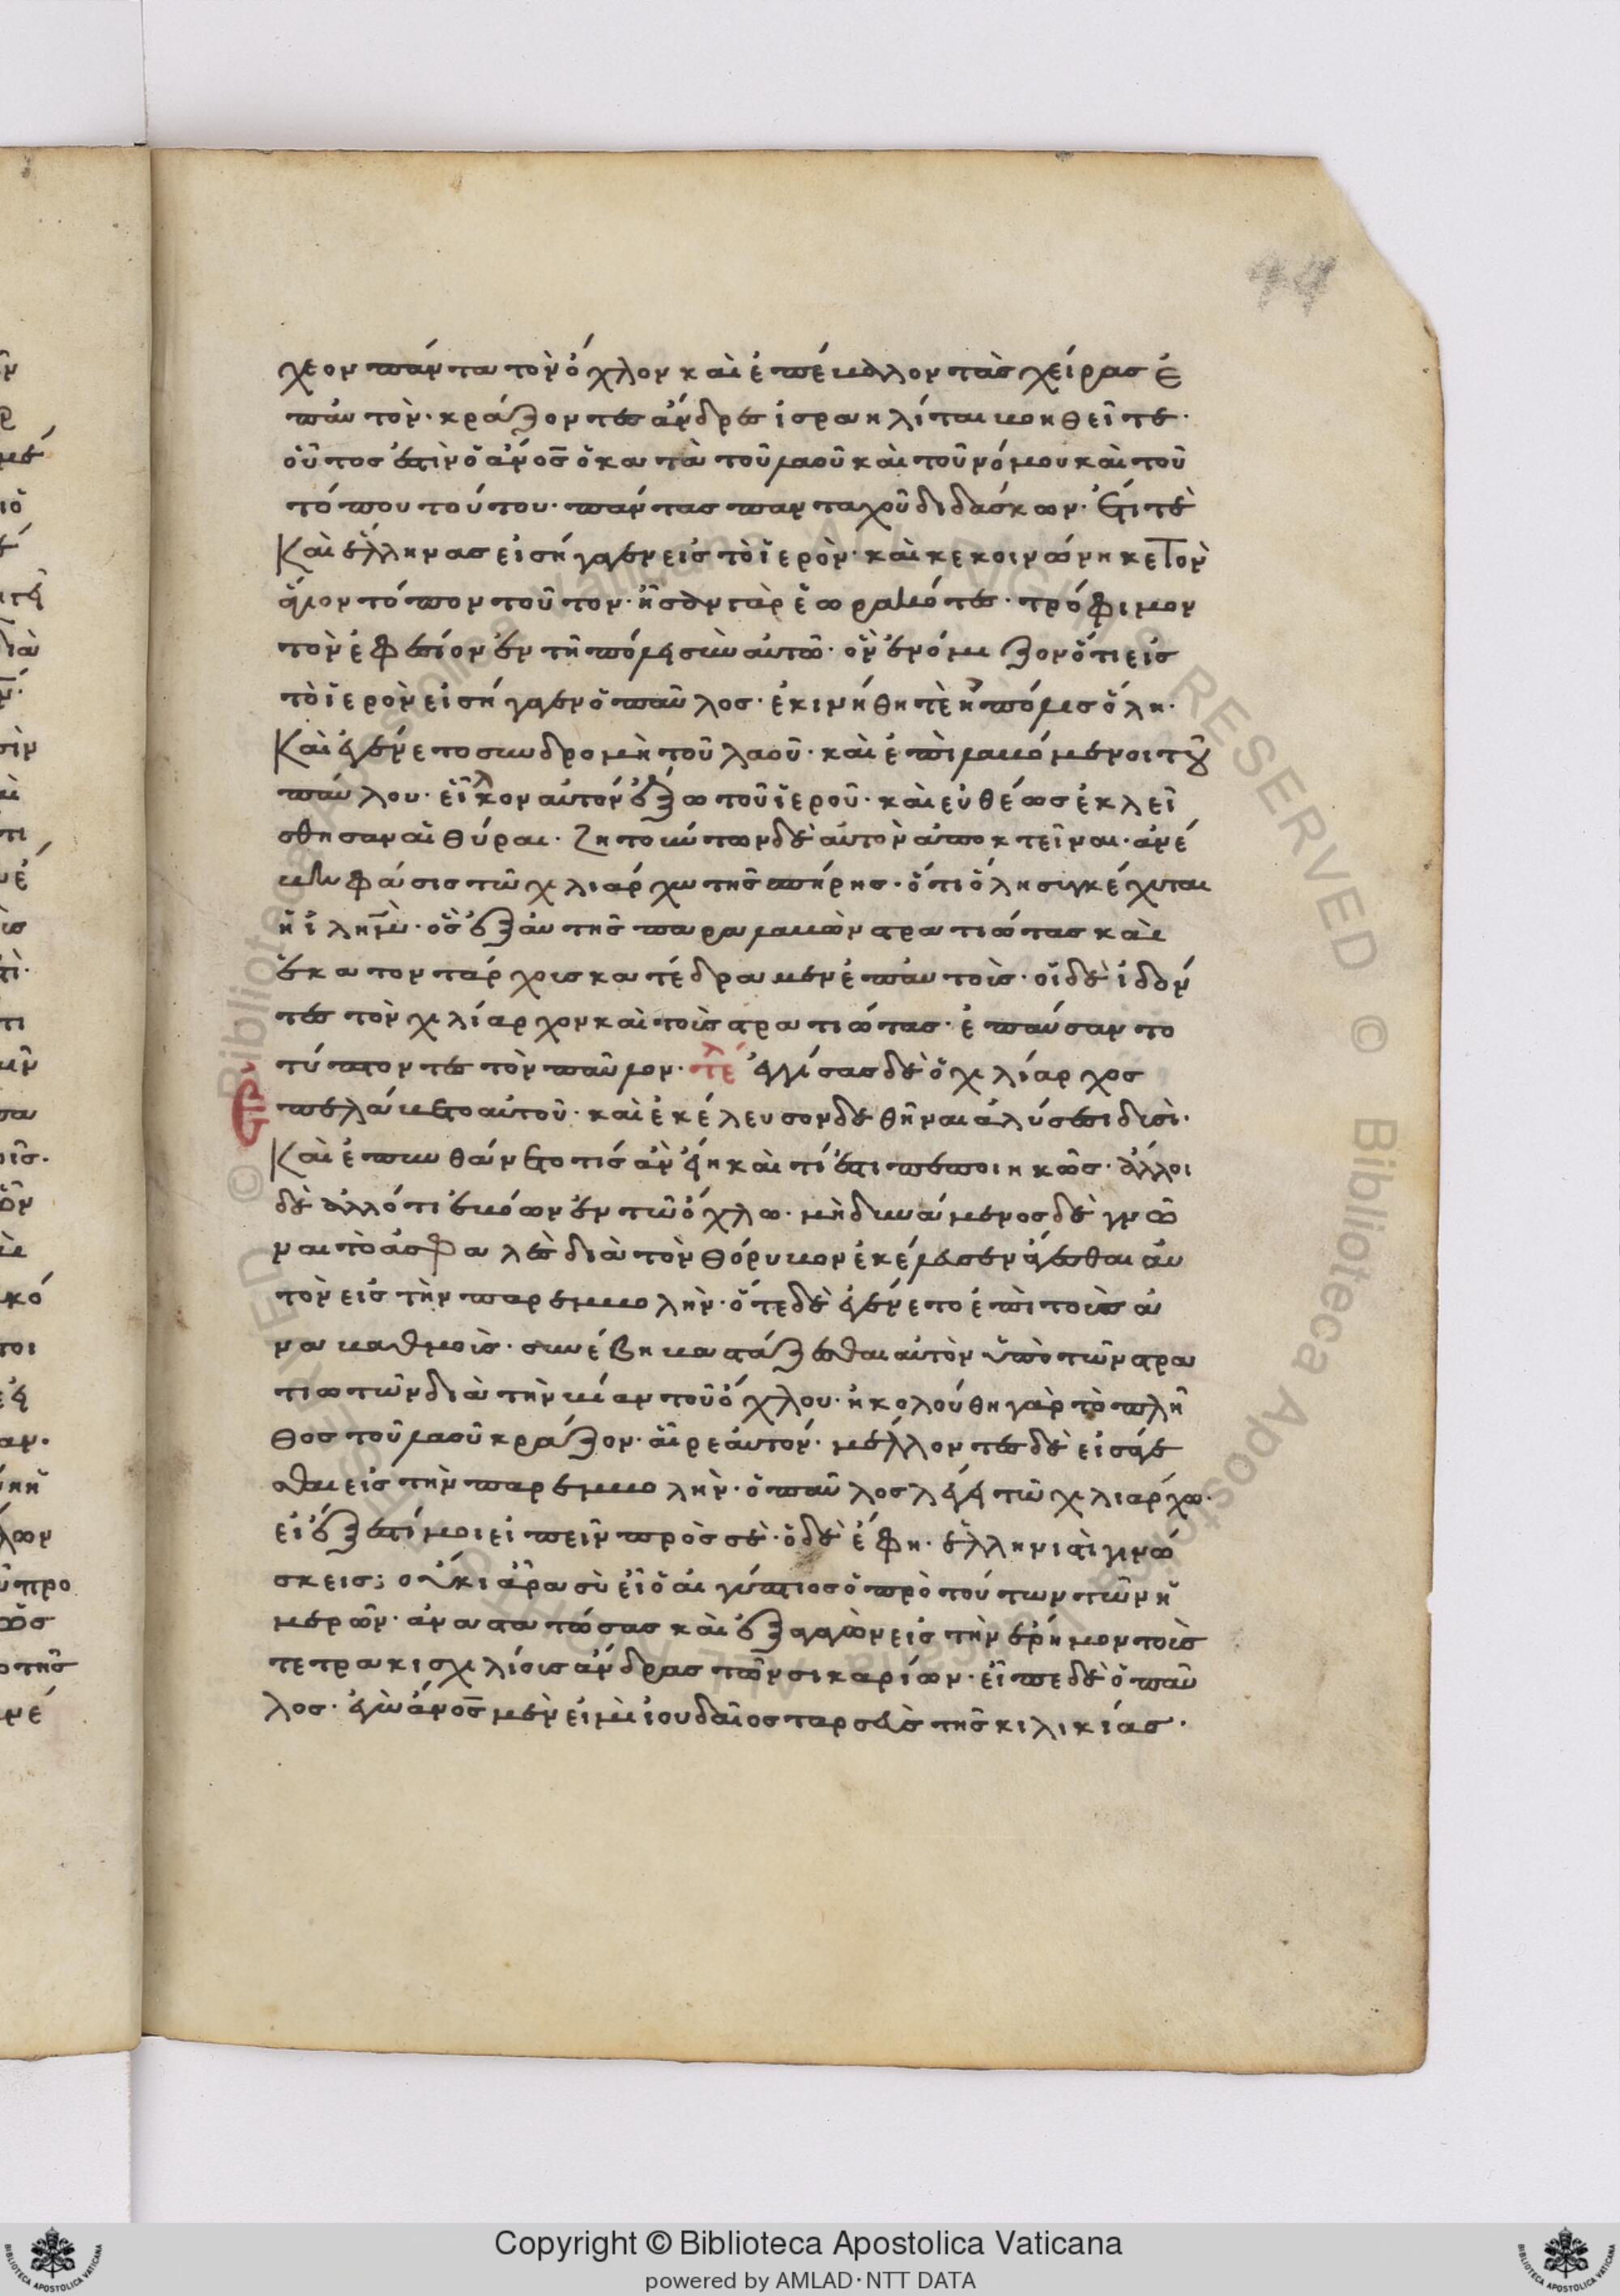 44
χεον πάντα τὸν ὄχλον καὶ ἐπέβαλλον τὰς χείρας ἐ
π' αὐτὸν· κράζοντες ἄνδρες ἰσραηλίται βοηθεῖτε·
οὗτος ἐστὶν ὁ ἄνος ὁ κατὰ τοῦ λαοῦ καὶ τοῦ νόμου καὶ τοῦ
τόπου τούτου· πάντας πανταχοῦ διδάσκων· ἔτι τὲ
Καὶ ἕλληνας εἰσήγαγεν εἰς τὸ ἱερὸν· καὶ κεκοινώνηκε τὸν
ἅγιον τόπον τοῦτον· ἦσαν γὰρ ἑωρακότες· τρόφιμον
τὸν ἐφέσιον ἐν τῆ πόλει σὺν αὐτῶ· ὃν ἐνόμιζον ὅτι εἰς
τὸ ἱερὸν εἰσήγαγεν ὁ παῦλος· ἐκινήθη τὲ ἡ πόλις ὅλη·
Καὶ ἐγένετο συνδρομὴ τοῦ λαοῦ· καὶ ἐπιλαβόμενοι τοῦ
παύλου· εἷλκον αὐτόν ἔξω τοῦ ἱεροῦ· καὶ εὐθέως ἐκλεί
σθησαν αἱ θύραι· ζητούντων δὲ αὐτὸν ἀποκτεῖναι· ἀνέ
βη φάσις τῶ χιλιάρχω τῆς σπήρης· ὅτι ὅλη συγκέχυται
ἡ ἱλημ· ὃς ἐξ αὐτῆς παραλαβὼν στρατιώτας καὶ
ἑκατοντάρχους κατέδραμεν ἐπ' αὐτοὺς· οἱ δὲ ἰδόν
τες τὸν χιλίαρχον καὶ τοὺς στρατιώτας· ἐπαύσαντο
τύπτοντες τὸν παῦλον· τέλ ἐγγίσας δὲ ὁ χιλίαρχος
ἐπελάβετο αὐτοῦ· καὶ ἐκέλευσον δεθῆναι ἁλύσεσι δυσὶ·
Καὶ ἐπυνθάνετο τίς ἂν εἴη καὶ τί ἐστι πεποιηκῶς· ἄλλοι
δὲ ἄλλό τι ἐβόων ἐν τῶ ὄχλω· μὴ δυνάμενος δὲ γνῶ
ναι τὸ ἀσφαλὲς διὰ τὸν θόρυβον ἐκέλευσεν ἄγεσθαι αὐ
τὸν εἰς τὴν παρεμβολὴν· ὅτε δὲ ἐγένετο ἐπὶ τοὺς ἀ
ναβαθμοὺς· συνέβη βαστάζεσθαι αὐτὸν ὑπὸ τῶν στρα
τιωτῶν διὰ τὴν βίαν τοῦ ὄχλου· ἠκολούθη γὰρ τὸ πλῆ
θος τοῦ λαοῦ κράζον· αἶρε αὐτόν· μέλλοντες δὲ εἰσάγε
σθαι εἰς τὴν παρεμβολὴν· ὁ παῦλος λέγει τῶ χιλιάρχω·
εἰ ἔξεστί μοι εἰπεῖν πρὸς σὲ· ὁ δὲ ἔφη· ἑλληνιστὶ γινώ
σκεις; οὔκι ἄρα σὺ εἶ ὁ αἰγύπτιος ὁ πρὸ τούτων τῶν ἡ
μερῶν· ἀναστατώσας καὶ ἐξαγαγὼν εἰς τὴν ἔρημον τοὺς
τετρακισχιλίους ἄνδρας τῶν σικαρίων· εἶπε δὲ ὁ παῦ
λος· ἐγὼ ἄνος μέν εἰμι ἰουδαῖος ταρσεὺς τῆς κιλικίας·
Copyright © Biblioteca Apostolica Vaticana
powered by AMLAD·NTT DATA